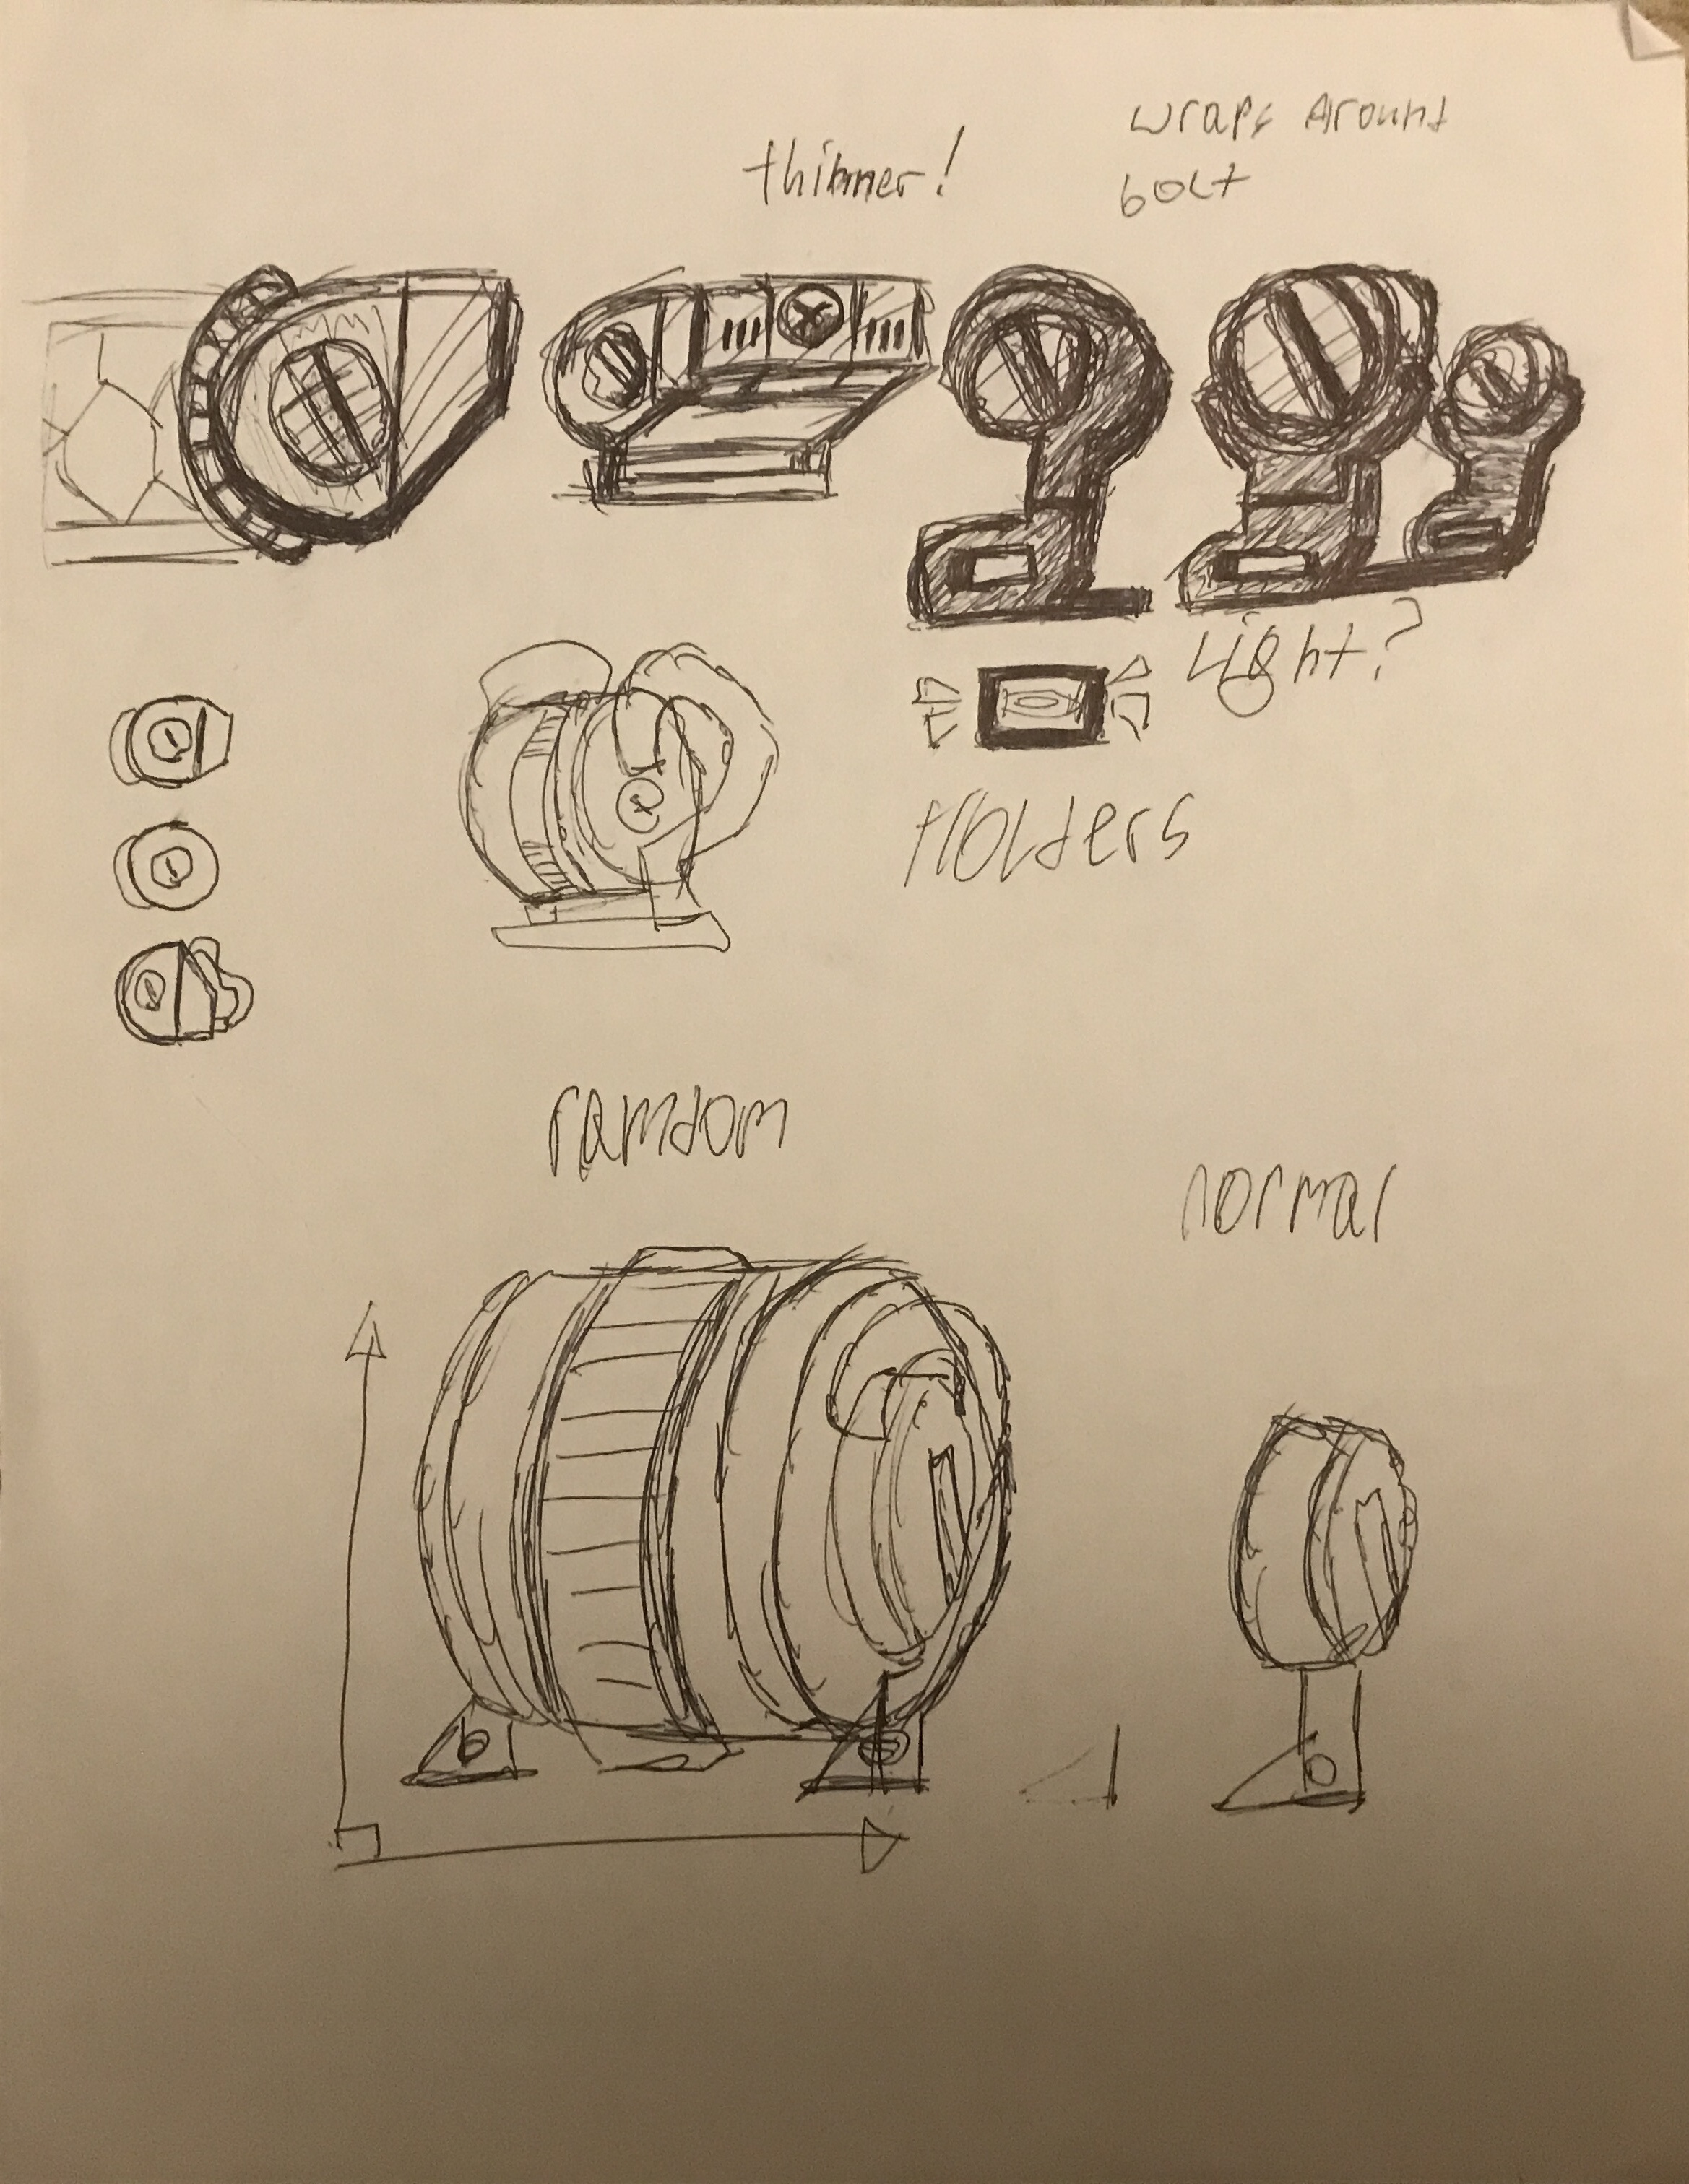 thinner!
wraps Around
bolt
Light?
Holders
random
normal